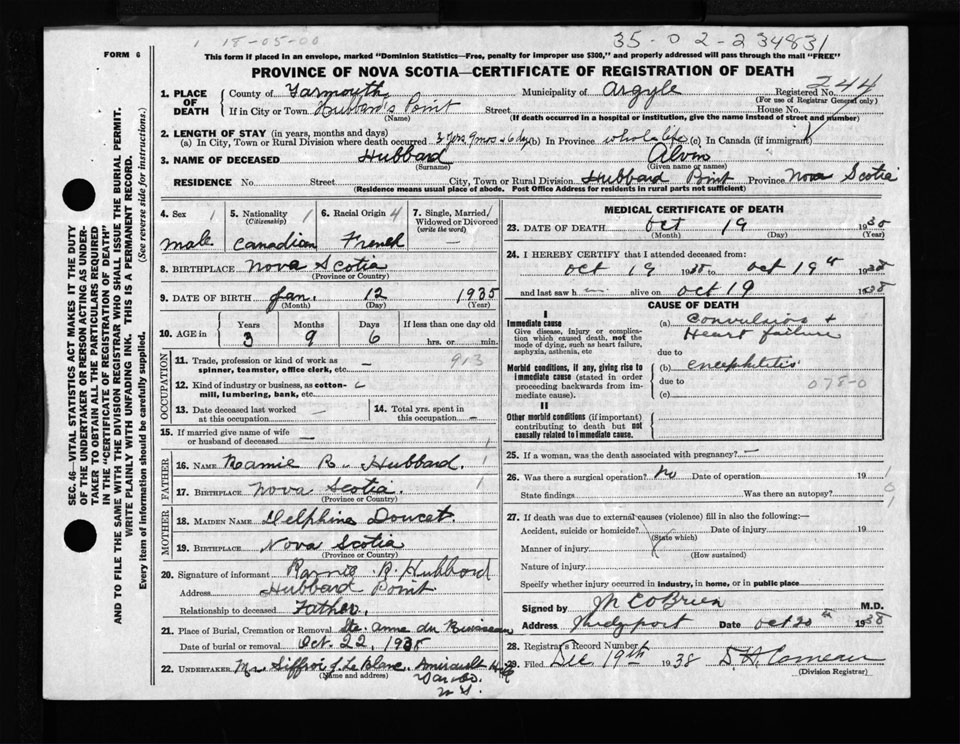 1 18-05-00
35-0 2-2 34831
FORM 6
This form if placed in an envelope, marked "Dominion Statistics—Free, penalty for improper use $300," and properly addressed will pass through the mail "FREE"
PROVINCE OF NOVA SCOTIA—CERTIFICATE OF REGISTRATION OF DEATH
SEC. 46—VITAL STATISTICS ACT MAKES IT THE DUTY
OF THE UNDERTAKER OR PERSON ACTING AS UNDER-
TAKER TO OBTAIN ALL THE PARTICULARS REQUIRED
IN THE "CERTIFICATE OF REGISTRATION OF DEATH"
AND TO FILE THE SAME WITH THE DIVISION REGISTRAR WHO SHALL ISSUE THE BURIAL PERMIT.
WRITE PLAINLY WITH UNFADING INK. THIS IS A PERMANENT RECORD.
Every item of information should be carefully supplied. (See reverse side for instructions.)
1. PLACE OF DEATH County of Yarmouth Municipality of Argyle Registered No. 244
(For use of Registrar General only)
If in City or Town Hubbard's Point Street House No.
(Name) (If death occurred in a hospital or institution, give the name instead of street and number)
2. LENGTH OF STAY (in years, months and days)
(a) In City, Town or Rural Division where death occurred 3 yrs 9 mos & 6 days (b) In Province whole life (c) In Canada (if immigrant)
3. NAME OF DECEASED Hubbard Alvin
(Surname) (Given name or names)
RESIDENCE No. Street City, Town or Rural Division Hubbard Point Province Nova Scotia
(Residence means usual place of abode. Post Office Address for residents in rural parts not sufficient)
4. Sex 1 5. Nationality (Citizenship) 1 6. Racial Origin 4 7. Single, Married, Widowed or Divorced (write the word)
Male Canadian French —
8. BIRTHPLACE Nova Scotia
(Province or Country)
9. DATE OF BIRTH Jan. 12 1935
(Month) (Day) (Year)
10. AGE in Years Months Days If less than one day old
3 9 6 hrs. or min.
OCCUPATION
11. Trade, profession or kind of work as spinner, teamster, office clerk, etc. — 913
12. Kind of industry or business, as cotton-mill, lumbering, bank, etc.
13. Date deceased last worked at this occupation —
14. Total yrs. spent in this occupation —
15. If married give name of wife or husband of deceased —
FATHER
16. NAME Ramie R. Hubbard. 1
17. BIRTHPLACE Nova Scotia. 1
(Province or Country)
MOTHER
18. MAIDEN NAME Delphine Doucet.
19. BIRTHPLACE Nova Scotia
(Province or Country)
20. Signature of informant Ramie R. Hubbard
Address Hubbard Point
Relationship to deceased Father.
21. Place of Burial, Cremation or Removal Ste. Anne du Ruisseau
Date of burial or removal Oct. 22, 1938
22. UNDERTAKER Mr. Siffroi J. LeBlanc. Amirault Hill
(Name and address) Yar. Co.
N.S.
MEDICAL CERTIFICATE OF DEATH
23. DATE OF DEATH Oct 19 1938
(Month) (Day) (Year)
24. I HEREBY CERTIFY that I attended deceased from:
Oct 19 1938 to Oct 19th 1938
and last saw h alive on Oct 19 1938
CAUSE OF DEATH
I
Immediate cause
Give disease, injury or complication which caused death, not the mode of dying, such as heart failure, asphyxia, asthenia, etc
(a) Convulsions + Heart failure
due to
Morbid conditions, if any, giving rise to immediate cause (stated in order proceeding backwards from immediate cause).
(b) encephilitis
due to 078-0
(c)
II
Other morbid conditions (if important) contributing to death but not causally related to immediate cause.
25. If a woman, was the death associated with pregnancy? —
26. Was there a surgical operation? No Date of operation 19
State findings Was there an autopsy?
27. If death was due to external causes (violence) fill in also the following:—
Accident, suicide or homicide? Date of injury 19
(State which)
Manner of injury
(How sustained)
Nature of injury
Specify whether injury occurred in industry, in home, or in public place
Signed by M C O'Brien M.D.
Address Wedgeport Date Oct 20th 1938
28. Registrar's Record Number
29. Filed Dec 19th 1938 D. H. Comeau
(Division Registrar)